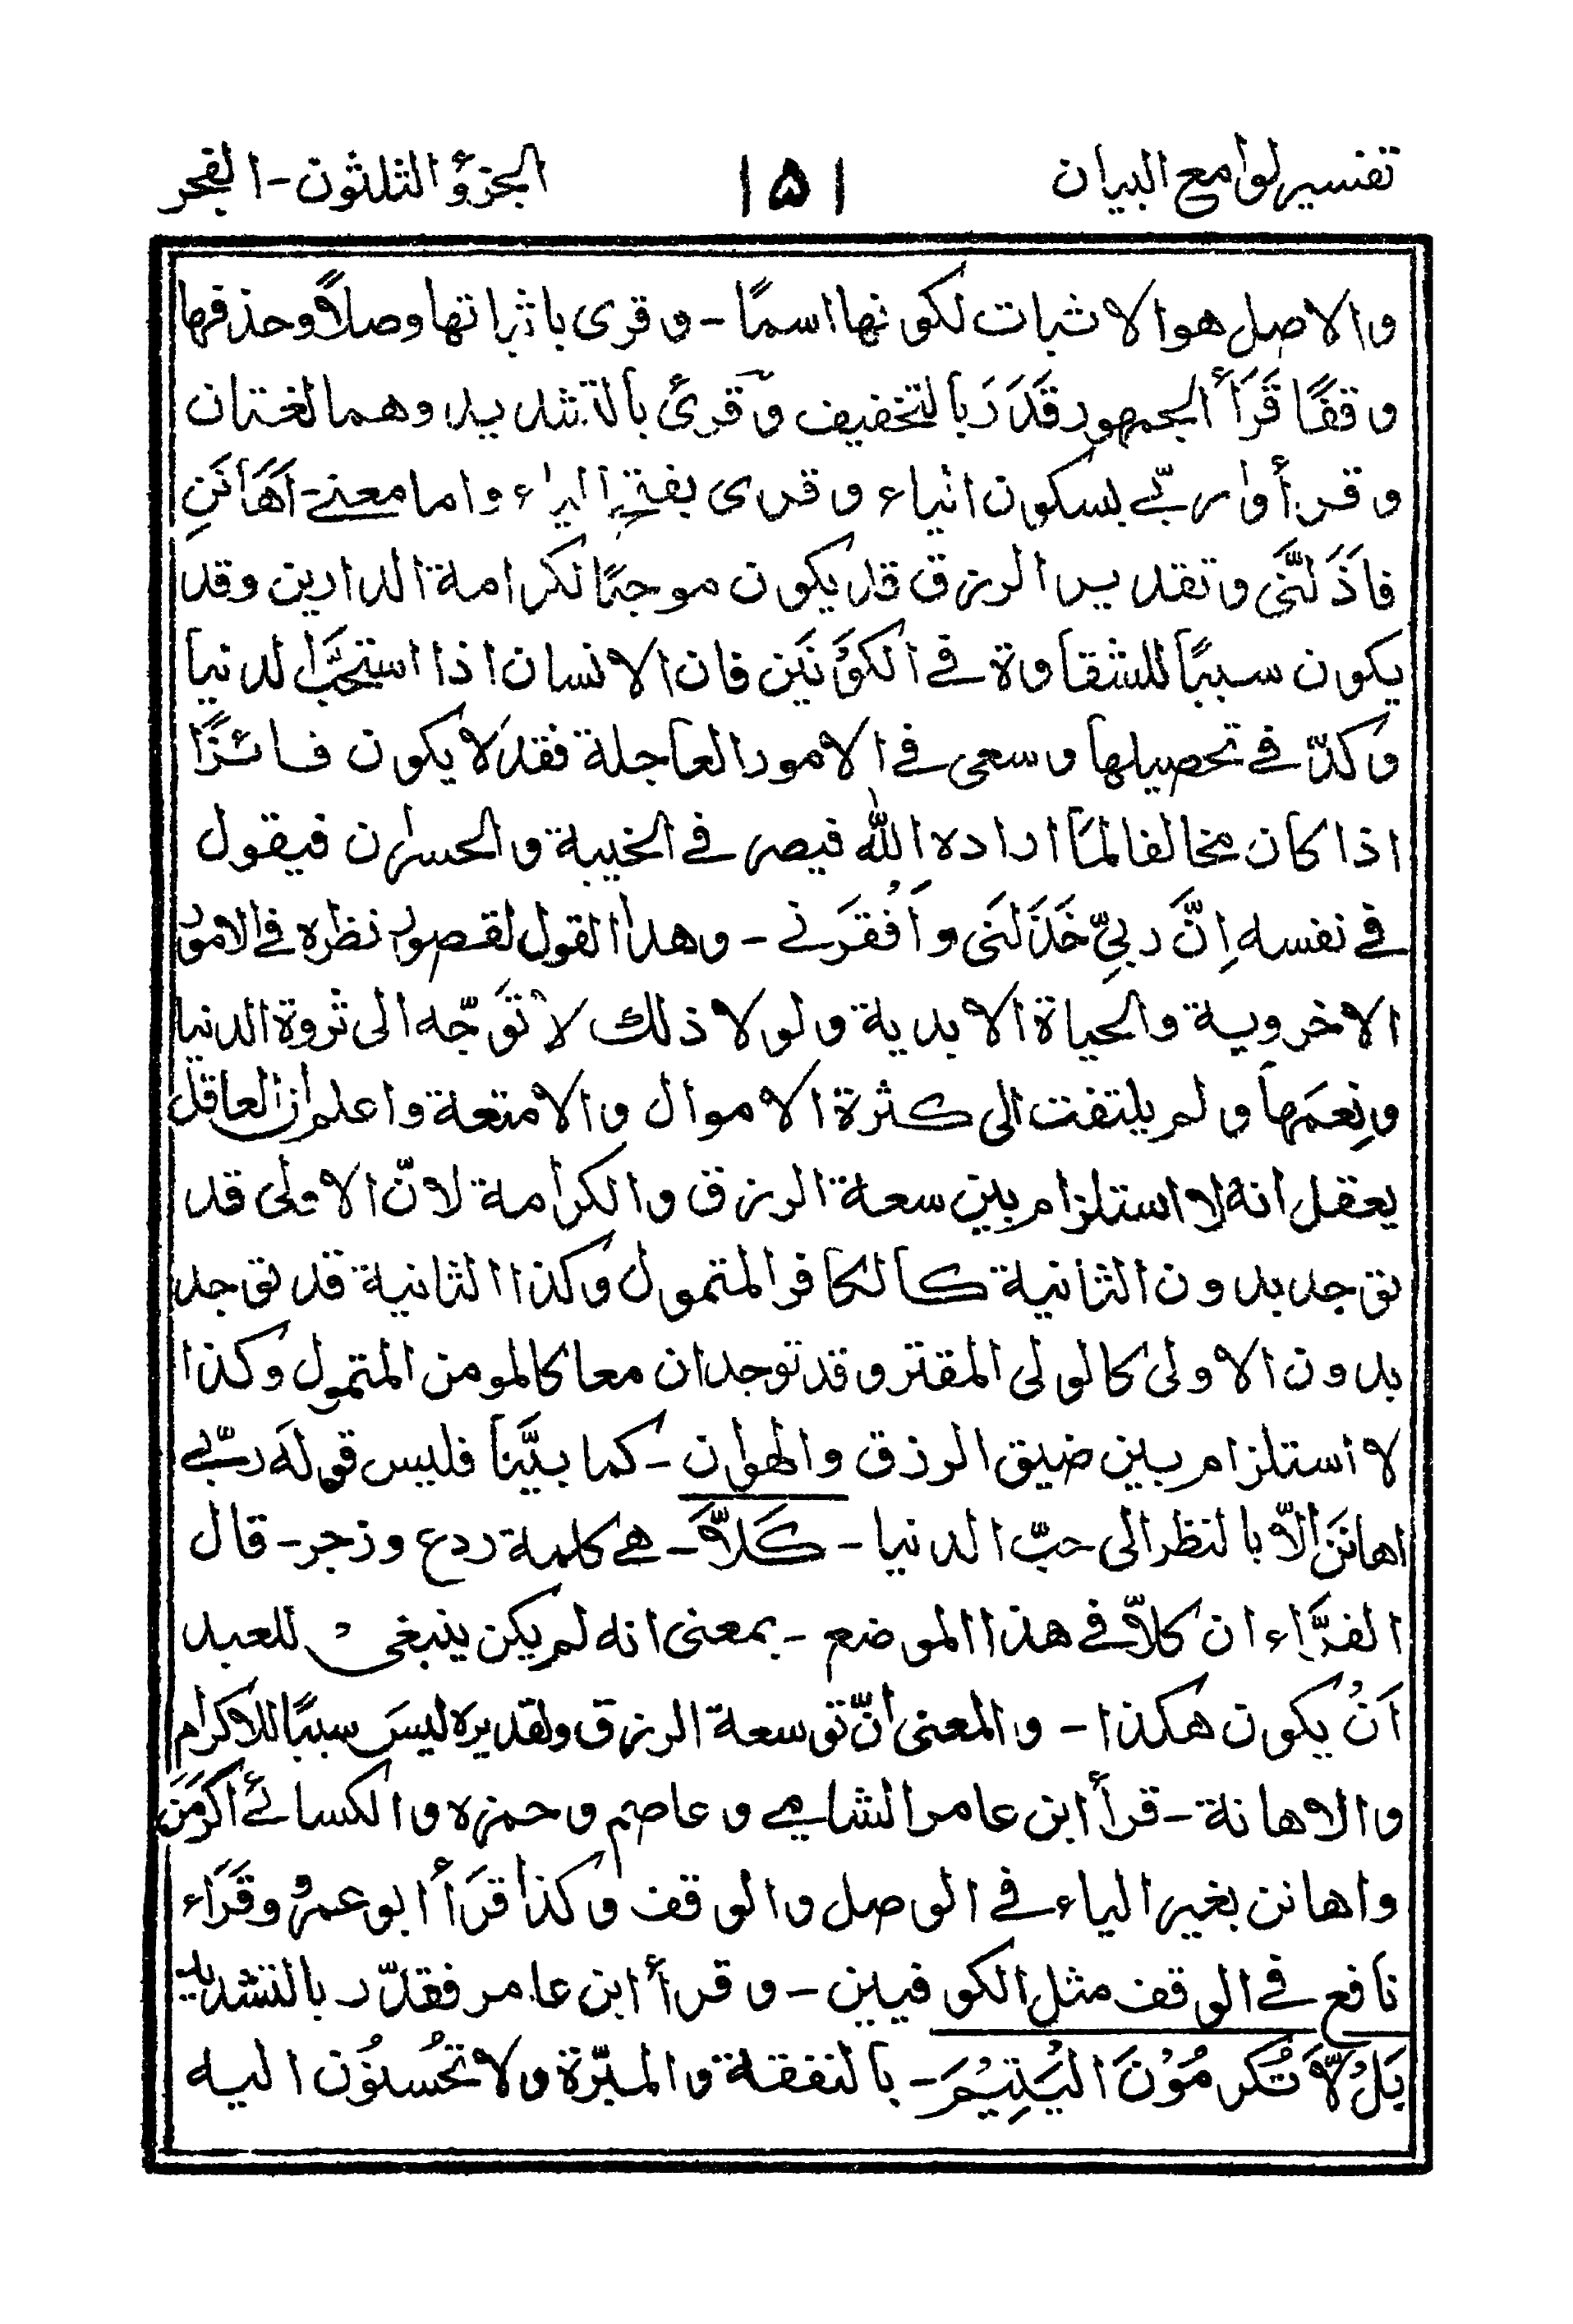 تفسیر لوامع البیان ۱۵۱ الجزؤ الثلثون - الفجر
والاصل هوالاثبات لکونها اسمًا - وقری باثباتها وصلاً وحذفها
وقفًا قَرَأ الجمهور قَدَ رَبالتخفیف وقریٔ بالتشدید وهما لغتان
وقرأوا ربّے بسکون الیاء وقری بفتح الیاء واما معنے اَهَانَنِ
فاَذَلَّنَی وتقدیر الرزق قد یکون موجبًا لکرامة الدارین وقد
یکون سببًا للشقاوة فی الکَوْنَیَن فان الانسان اذا استحَبَّ الدنیا
وَکدّ فے تحصیلها وسعی فے الامور العاجلة فقد لا یکون فائزًا
اذا کان مخالفا لمَا اراده اللّٰه فیصر فے الخیبة والحسران فیقول
فے نفسه اِنَّ ربیّ خَذَلَنَی واَفْقَرَنے - وهذا القول لقصور نظره فے الامور
الاخرویة والحیاة الابدیة ولولا ذلك لا تَوَجّه الی ثروة الدنیا
ونِعَمَها ولم یلتفت الی کثرة الاموال والامتعة واعلم ان العاقل
یعقل انه لا استلزام بین سعة الرزق والکرامة لانّ الاولی قد
توجد بدون الثانیة کالکافر المتمول وکذا الثانیة قد توجد
بدون الاولی کالولی المقتر وقد توجدان معا کالمومن المتمول وکذا
لا استلزام بین ضیق الرزق والهوان - کما بیَّنا فلیس قوله ربّے
اهاننَ الّا بالنظر الی حبّ الدنیا - کَلاَّ - هے کلمة ردع وزجر - قال
الفرَّاء ان کلاّ فے هذا الموضع - بمعنی انه لم یکن ینبغی للعبد
اَنْ یکون هکذا - والمعنی انّ توسعة الرزق وتقدیره لیسَ سببًا للاکرام
والاهانة - قرأ ابن عامر الشامے وعاصم وحمزه والکسائے اکرَمَنَ
واهانن بغیر الیاء فے الوصل والوقف وکذا قرَأ ابو عمرو وقَرَاء
نافع فے الوقف مثل الکوفیین - وقرأ ابن عامر فقدّر بالتشدید
بَلْ لاَّ تُکرمُوْنَ الیَتِیْمَ - بالنفقة والمبرّة ولا تحُسِنُوْن الیه